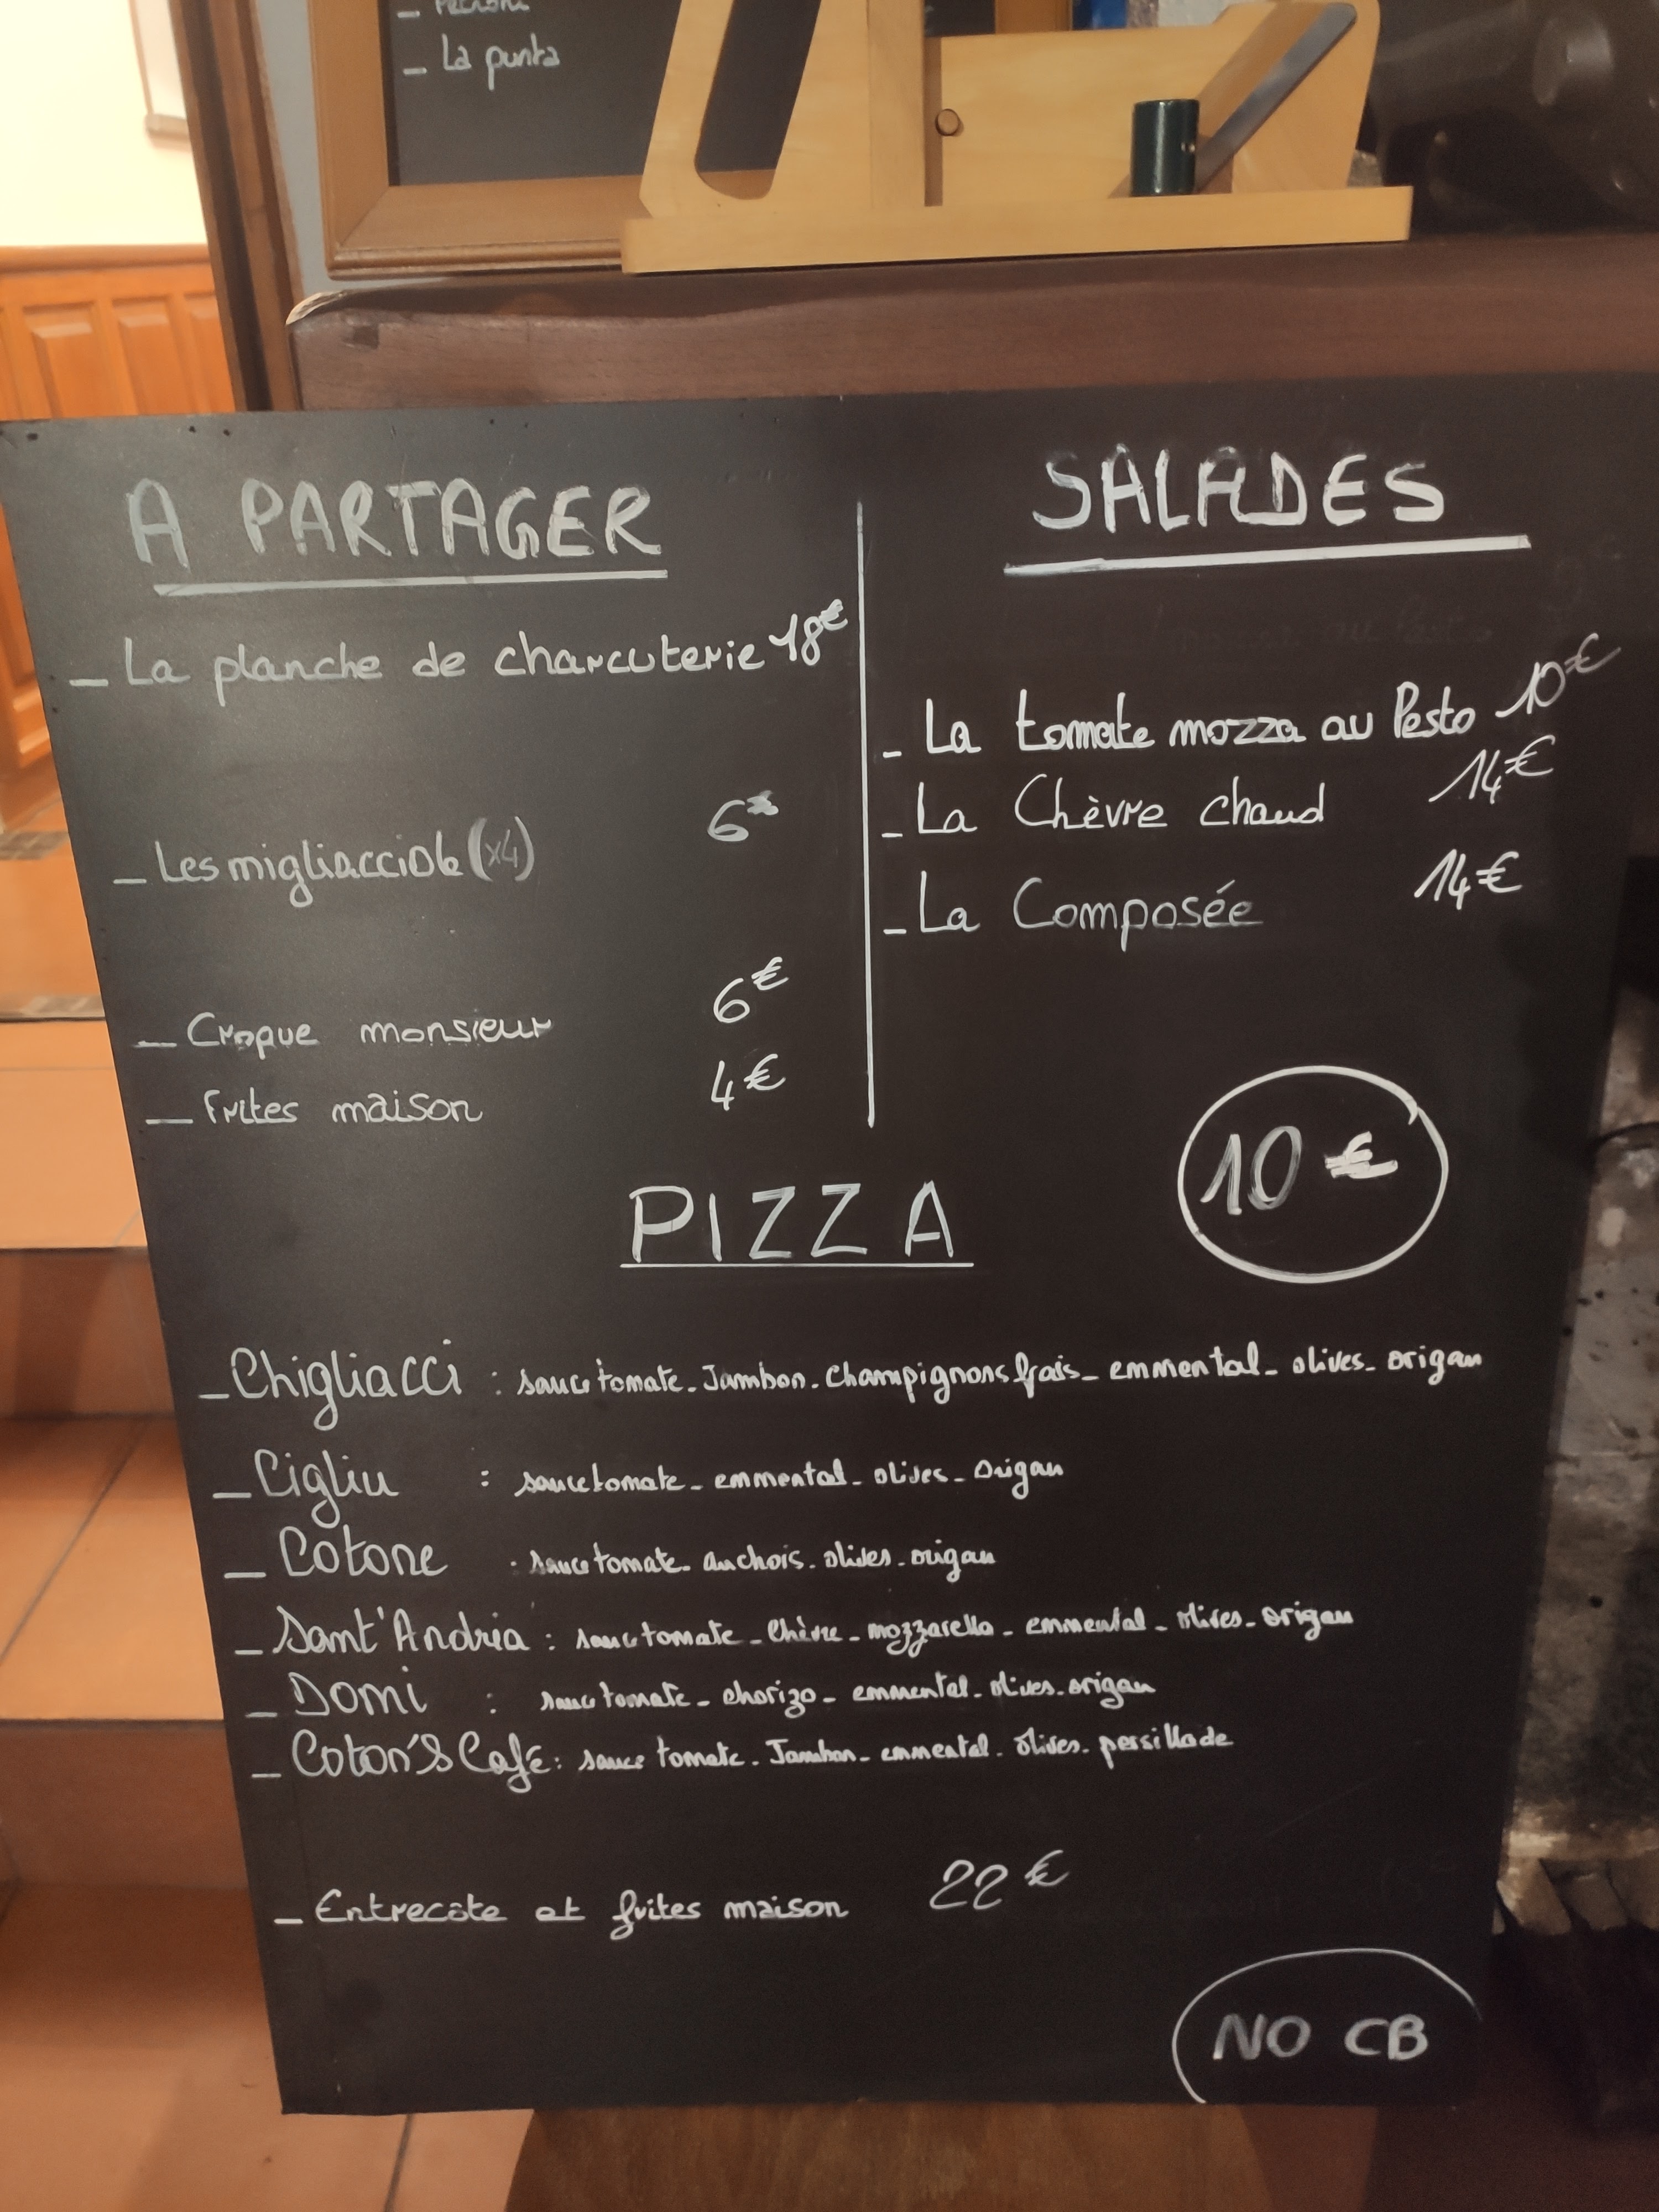 _ La punta
A PARTAGER
_ La planche de charcuterie 18€
_ Les migliacciole (x4) 6€
_ Croque monsieur 6€
_ Frites maison 4€
SALADES
_ La tomate mozza au Pesto 10€
_ La Chèvre chaud 14€
_ La Composée 14€
PIZZA 10€
_ Chigliacci : sauce tomate - Jambon - Champignons frais - emmental - olives - origan
_ Cigliu : sauce tomate - emmental - olives - origan
_ Cotone : sauce tomate - anchois - olives - origan
_ Sant'Andria : sauce tomate - Chèvre - mozzarella - emmental - olives - origan
_ Domi : sauce tomate - chorizo - emmental - olives - origan
_ Coton'S Café : sauce tomate - Jambon - emmental - olives - persillade
_ Entrecôte et frites maison 22€
NO CB